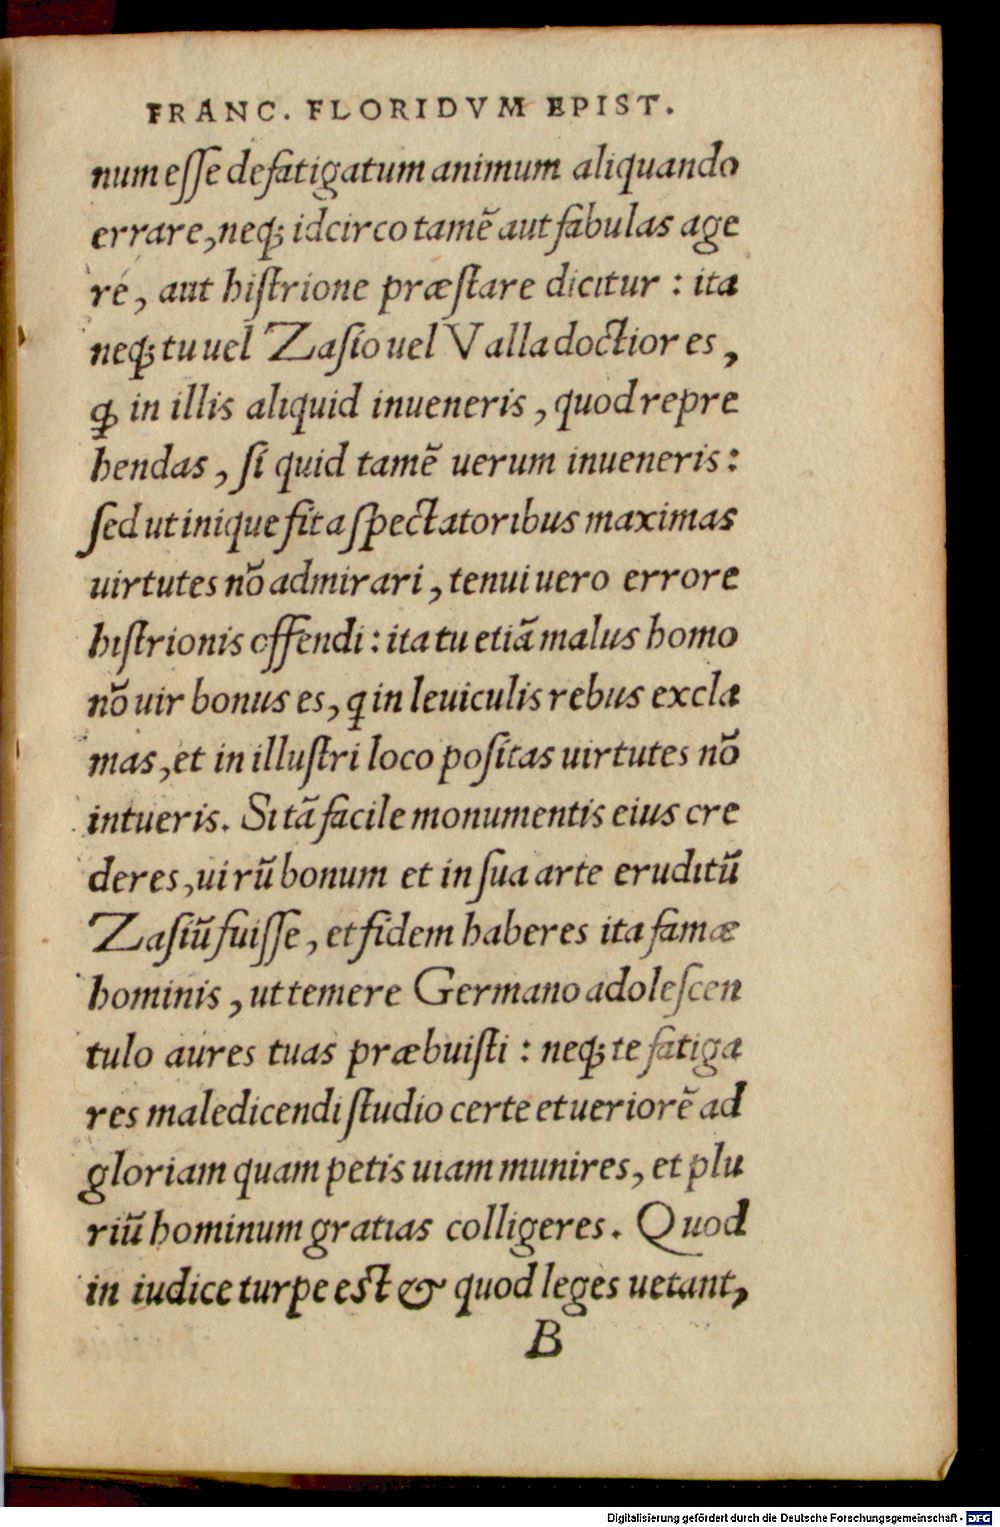 FRANC. FLORIDVM EPIST.
num eſſe defatigatum animum aliquando
errare, neqꝫ idcirco tamē aut fabulas age
re, aut hiſtrione præſtare dicitur : ita
neqꝫ tu uel Zaſio uel Valla doctior es,
ꝙ in illis aliquid inueneris, quod repre
hendas, ſi quid tamē uerum inueneris:
ſed ut inique fit a ſpectatoribus maximas
uirtutes nõ admirari, tenui uero errore
hiſtrionis offendi : ita tu etiã malus homo
nõ uir bonus es, ꝗ in leuiculis rebus excla
mas, et in illuſtri loco poſitas uirtutes nõ
intueris. Si tã facile monumentis eius cre
deres, uirũ bonum et in ſua arte eruditũ
Zaſiũ fuiſſe, et fidem haberes ita famæ
hominis, ut temere Germano adoleſcen
tulo aures tuas præbuiſti : neqꝫ te fatiga
res maledicendi ſtudio certe et ueriorē ad
gloriam quam petis uiam munires, et plu
riũ hominum gratias colligeres. Quod
in iudice turpe eſt & quod leges uetant,
B
Digitalisierung gefördert durch die Deutsche Forschungsgemeinschaft - DFG